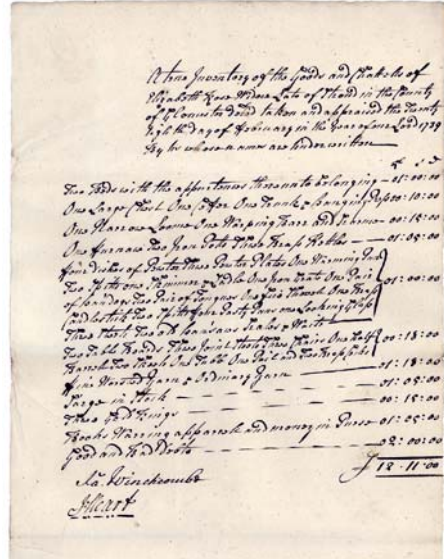 A true Inventory of the Goods and Chattells of
Elizabeth Rose Widow Late of Stroud in the County
of Glocester deced taken and appraised the Twenty
Eigth day of February in the Year of our Lord 1739
By us whose names are under written
£ s d
Two Beds with the appurtences thereunto belonging — 01:00:00
One Large Chest One Coffer One Trunk & hanging Press 00:10:00
One Narrow Loome One Warping Barr and — 00:15:00
One Furnace Two Iron Potts Three Brass Kettles — 01:05:00
dishes of Pewter Three Pewter Plates One Warming Pan
Two One Skimmer & Ladle One Iron One Pair
of handogs Two Pair of Tongues One Fire Shovel One Brass
Candlestick Two One Looking Glass
01:00:00
Three Scales & Waits
Two Table Boards Three Joint Stools Three Chairs One Half
Barrel Two One Tub One Pail and Two
00:18:00
Fine Worsted Yarn & Ordinary Yarn — 01:18:00
Sarge in Stock — 01:05:00
Three Gold Rings — 00:15:00
Books Waring apparrel and money in Purse 01:05:00
Good and Bad Debts — 02:00:00
12-11-00
Winchcombe